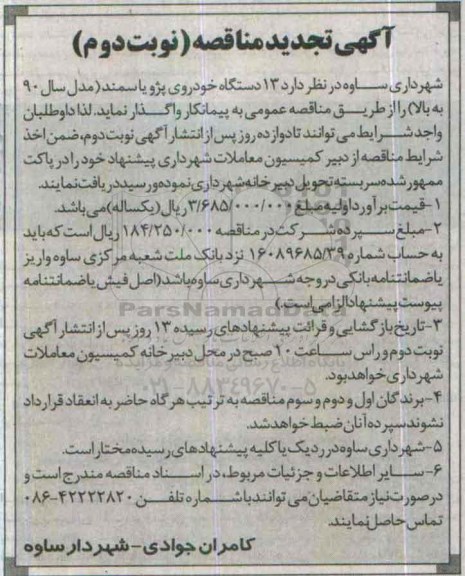 آگهی تجدید مناقصه (نوبت دوم)
شهرداری ساوه در نظر دارد ۱۳ دستگاه خودروی پژو یا سمند (مدل سال ۹۰
به بالا) را از طریق مناقصه عمومی به پیمانکار واگذار نماید. لذا داوطلبان
واجد شرایط می توانند تا دوازده روز پس از انتشار آگهی نوبت دوم، ضمن اخذ
شرایط مناقصه از دبیر کمیسیون معاملات شهرداری پیشنهاد خود را در پاکت
ممهور شده سربسته تحویل دبیرخانه شهرداری نموده و رسید دریافت نمایند.
۱- قیمت برآورد اولیه مبلغ ۳/۶۸۵/۰۰۰/۰۰۰ ریال (یکساله) می باشد.
۲- مبلغ سپرده شرکت در مناقصه ۱۸۴/۲۵۰/۰۰۰ ریال است که باید
به حساب شماره ۱۶۰۸۹۶۸۵/۳۹ نزد بانک ملت شعبه مرکزی ساوه واریز
یا ضمانتنامه بانکی در وجه شهرداری ساوه باشد (اصل فیش یا ضمانتنامه
پیوست پیشنهاد الزامی است.)
ParsNamadData
۳- تاریخ بازگشایی و قرائت پیشنهادهای رسیده ۱۳ روز پس از انتشار آگهی
نوبت دوم و راس ساعت ۱۰ صبح در محل دبیرخانه کمیسیون معاملات
شهرداری خواهد بود.
۰۲۱-۸۸۳۴۹۶۷۰-۵
۴- برندگان اول و دوم و سوم مناقصه به ترتیب هر گاه حاضر به انعقاد قرارداد
نشوند سپرده آنان ضبط خواهد شد.
۵- شهرداری ساوه در رد یک یا کلیه پیشنهادهای رسیده مختار است.
۶- سایر اطلاعات و جزئیات مربوط، در اسناد مناقصه مندرج است و
در صورت نیاز متقاضیان می توانند با شماره تلفن ۴۲۲۲۲۸۲۰-۰۸۶
تماس حاصل نمایند.
کامران جوادی - شهردار ساوه